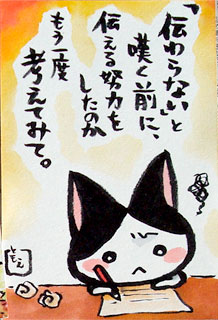 「伝わらない」と
嘆く前に、
伝える努力を
したのか
もう一度
考えてみて。
ともえ